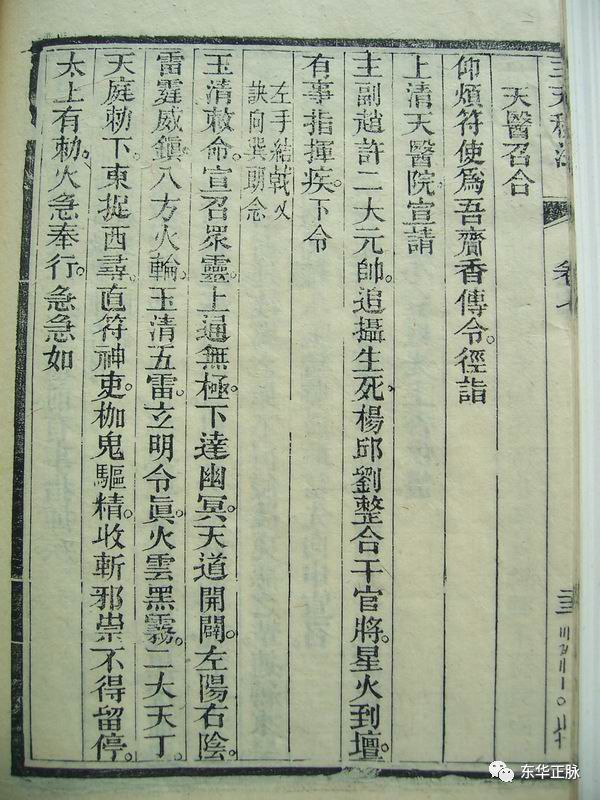 天醫召合
仰煩符使爲吾齎香傳令。徑詣
上清天醫院宣請
主副趙許二大元帥。追攝生死楊邱劉整合干官將。星火到壇。
有事指揮疾。下令
左手結戟义
訣向巽 念
玉清敕命。宣召眾靈。上通無極。下達幽冥。天道開闢。左陽右陰。
雷霆威鎮。八方火輪。玉清五雷。立明令眞。火雲黑霧。二大天丁。
天庭勅下。東捉西尋。直符神吏。枷鬼驅精。收斬邪祟。不得留停。
太上有勅。火急奉行。急急如
东华正脉